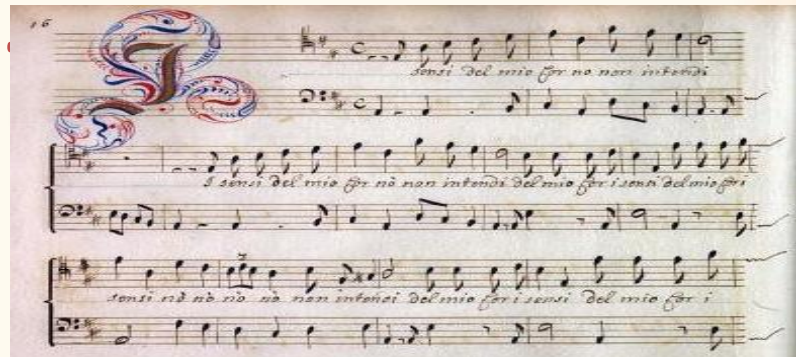 16
I sensi del mio Cor no non intendi
I sensi del mio Cor nò non intendi del mio Cor i sensi del mio Cor i
sensi nò nò nò nò non intendi del mio Cor i sensi del mio Cor i